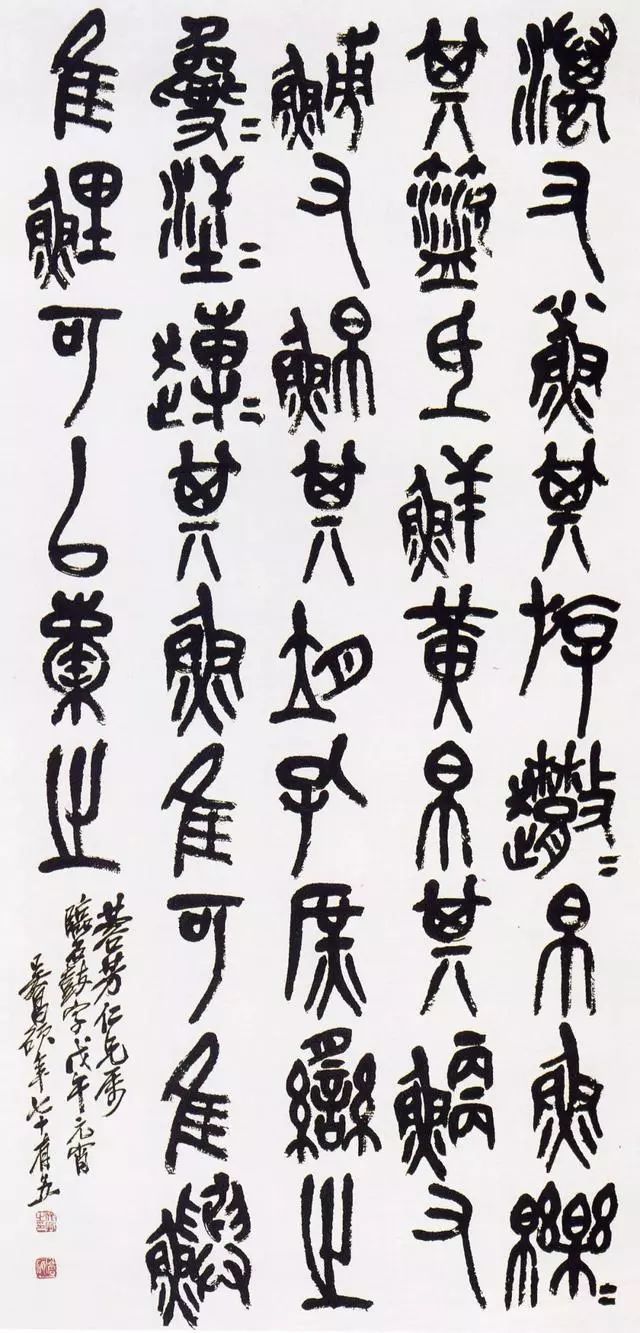 澫又小魚其斿帛魚皪=
其氐鮮黃帛其鯿又
又鮊其孔庶臠之
其魚隹可隹鱮
隹鯉可以橐之
芳仁兄屬
臨石鼓字戊午元宵
吳昌碩年七十有五